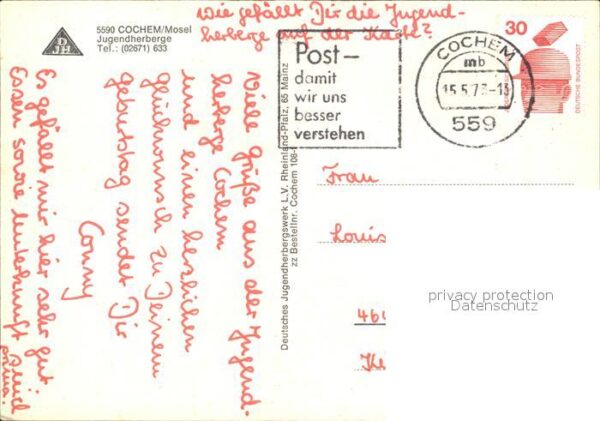 Wie gefällt Dir die Jugend-
herberge auf der Karte?
5590 COCHEM/Mosel
Jugendherberge
Tel.: (02671) 633
DJH
Post –
damit
wir uns
besser
verstehen
COCHEM
mb
15.5.7
-13
559
30
DEUTSCHE BUNDESPOST
Viele Grüße aus der Jugend-
herberge Cochem
und einen herzlichen
Glückwunsch zu Deinem
Geburtstag sendet Dir
Conny
Es gefällt mir hier sehr gut
Essen sowie Unterkunft sind
prima.
Deutsches Jugendherbergswerk L.V. Rheinland-Pfalz, 65 Mainz
zz Bestellnr. Cochem 108-
Frau
Louis
46
privacy protection
Datenschutz